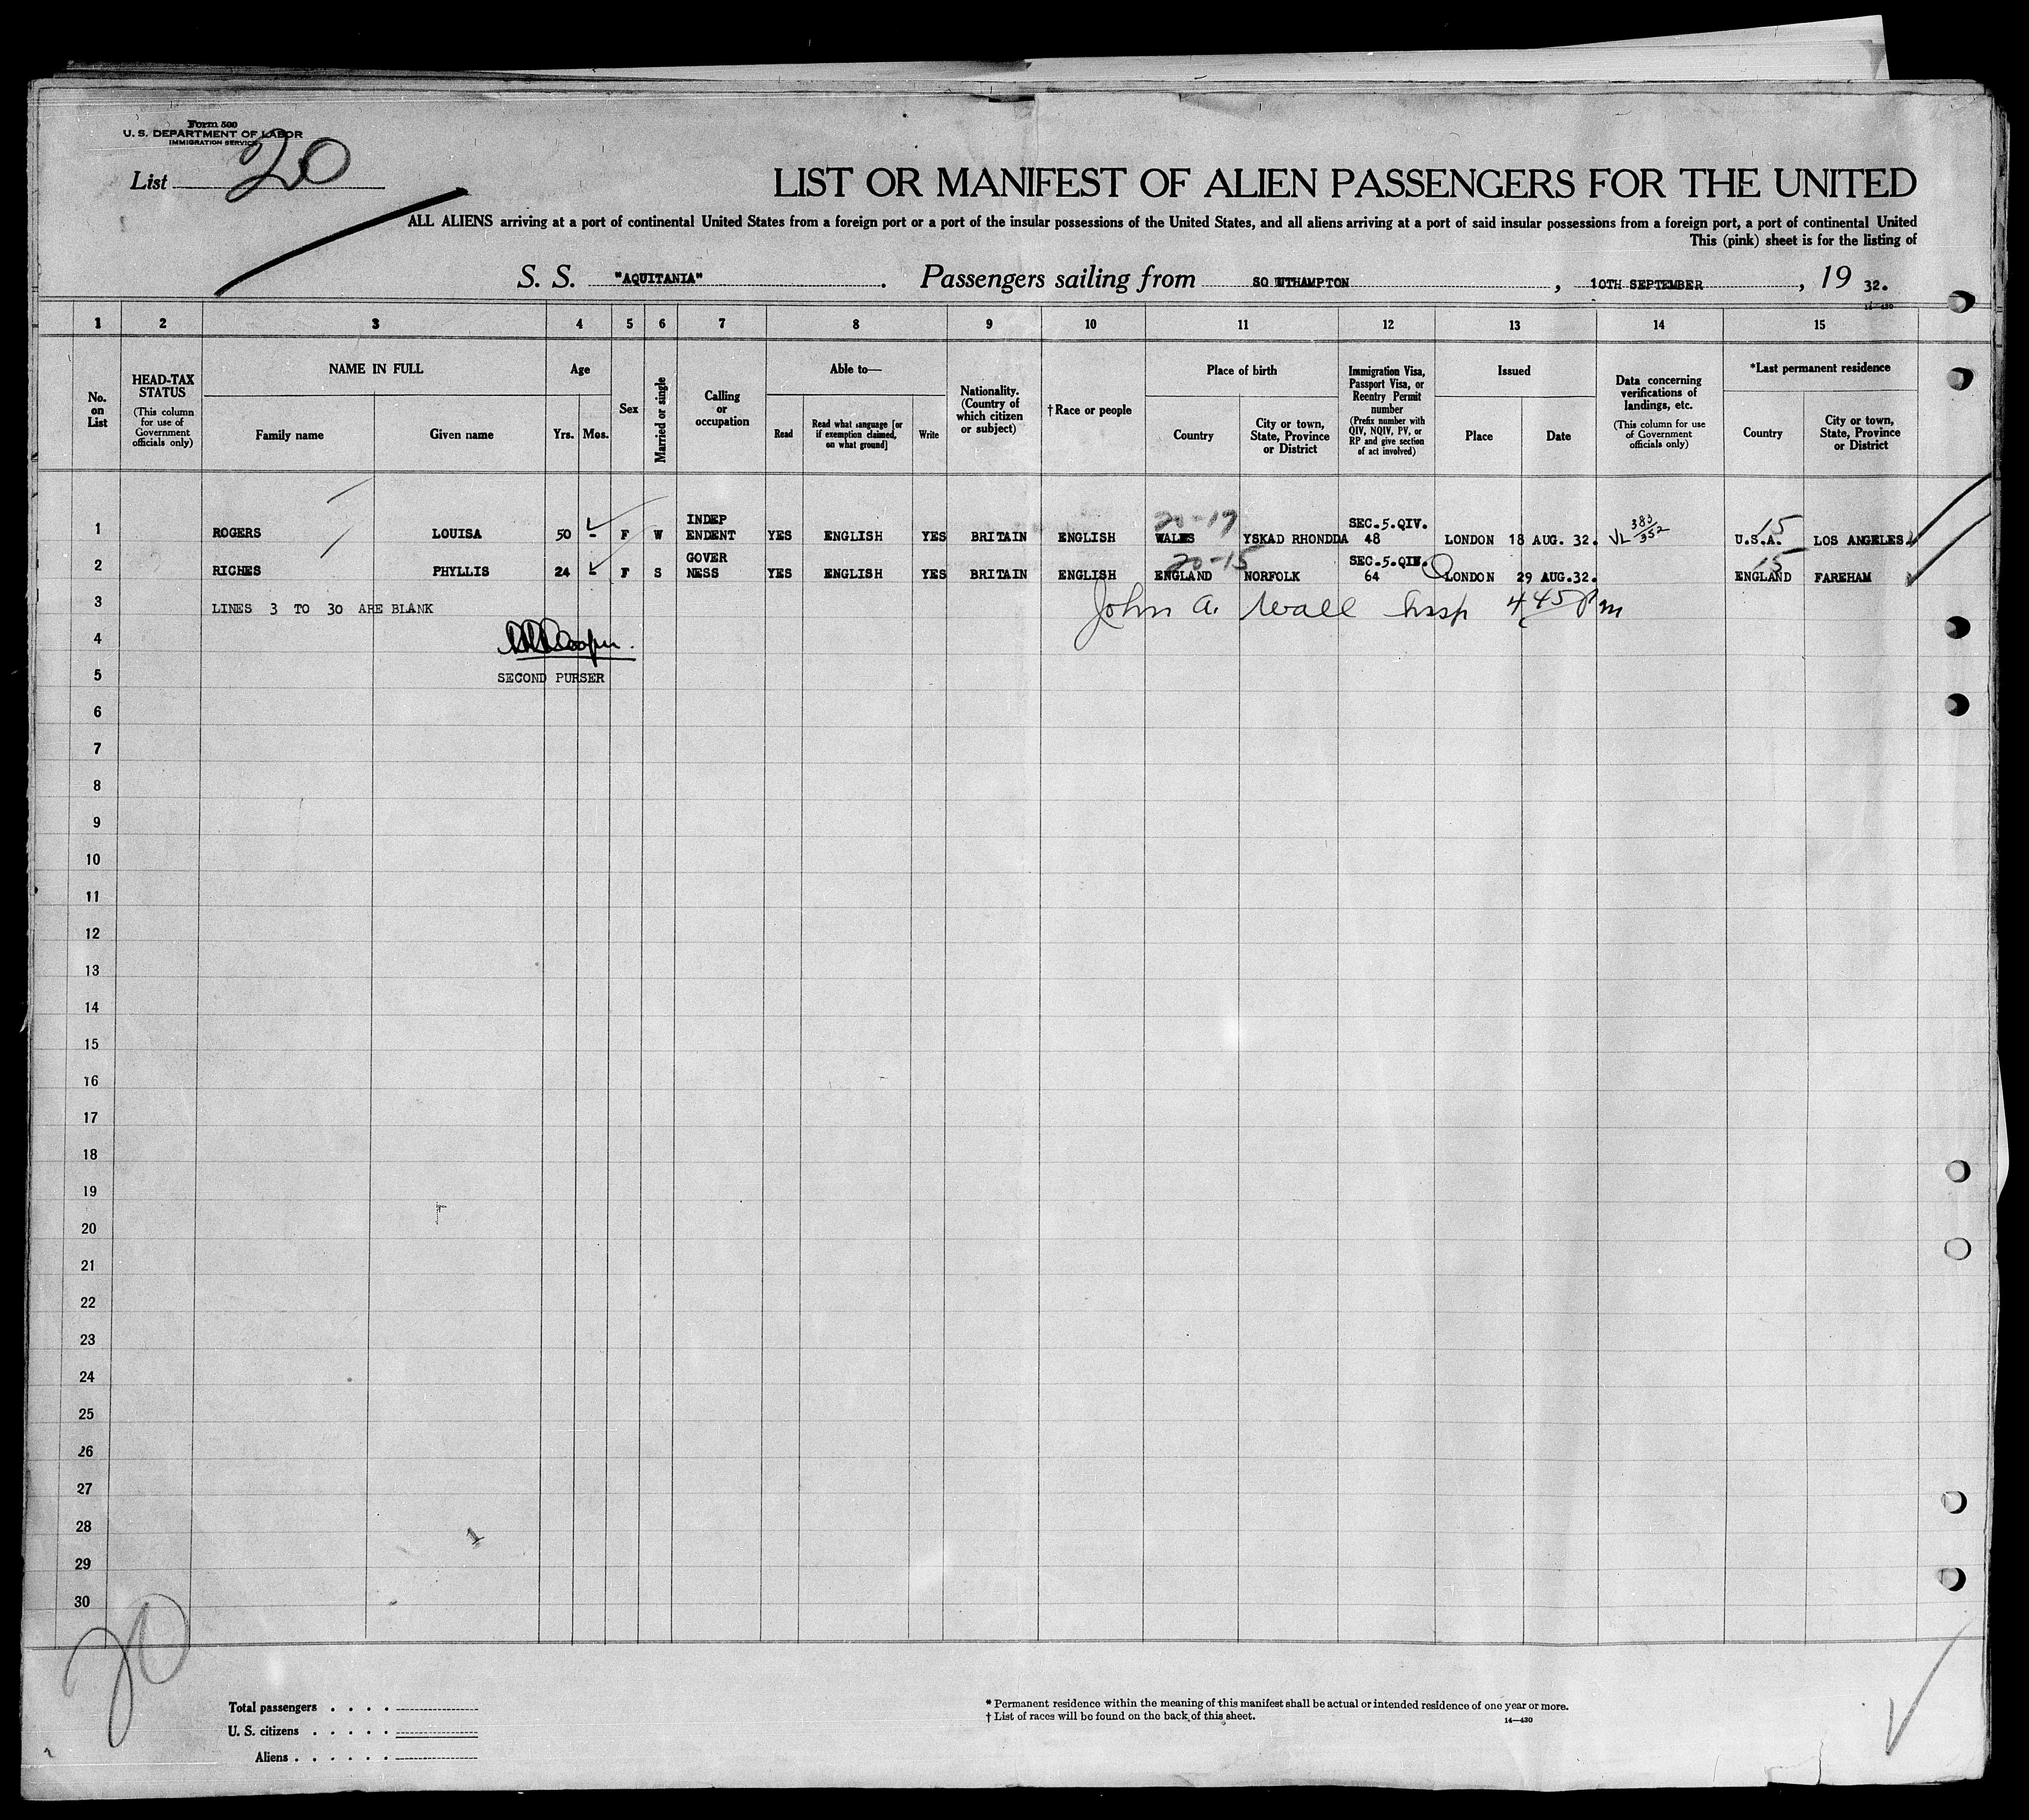 Form 500
U. S. DEPARTMENT OF LABOR
IMMIGRATION SERVICE
List 20
LIST OR MANIFEST OF ALIEN PASSENGERS FOR THE UNITED
ALL ALIENS arriving at a port of continental United States from a foreign port or a port of the insular possessions of the United States, and all aliens arriving at a port of said insular possessions from a foreign port, a port of continental United
This (pink) sheet is for the listing of
S. S. "AQUITANIA". Passengers sailing from SOUTHAMPTON, 10TH SEPTEMBER, 19 32.
14—430
1 2 3 4 5 6 7 8 9 10 11 12 13 14 15
No. on List
HEAD-TAX STATUS
(This column for use of Government officials only)
NAME IN FULL
Family name Given name
Age
Yrs. Mos.
Sex
Married or single
Calling or occupation
Able to—
Read
Read what language [or if exemption claimed, on what ground]
Write
Nationality. (Country of which citizen or subject)
†Race or people
Place of birth
Country
City or town, State, Province or District
Immigration Visa, Passport Visa, or Reentry Permit number
(Prefix number with QIV, NQIV, PV, or RP and give section of act involved)
Issued
Place Date
Data concerning verifications of landings, etc.
(This column for use of Government officials only)
*Last permanent residence
Country
City or town, State, Province or District
20-19 15
1 ROGERS LOUISA 50 - F W INDEP ENDENT YES ENGLISH YES BRITAIN ENGLISH WALES YSKAD RHONDDA SEC.5.QIV. 48 LONDON 18 AUG. 32. VL 383/352 U.S.A. LOS ANGELES.
20-15 15
2 RICHES PHYLLIS 24 - F S GOVER NESS YES ENGLISH YES BRITAIN ENGLISH ENGLAND NORFOLK SEC.5.QIV. 64 LONDON 29 AUG.32. ENGLAND FAREHAM
3 LINES 3 TO 30 ARE BLANK John A. Wall Insp 4 45 Pm
4 Cooper.
5 SECOND PURSER
6
7
8
9
10
11
12
13
14
15
16
17
18
19
20
21
22
23
24
25
26
27
28
29
30
20
Total passengers . . . .
U. S. citizens . . . . .
Aliens . . . . . .
* Permanent residence within the meaning of this manifest shall be actual or intended residence of one year or more.
† List of races will be found on the back of this sheet.
14—430